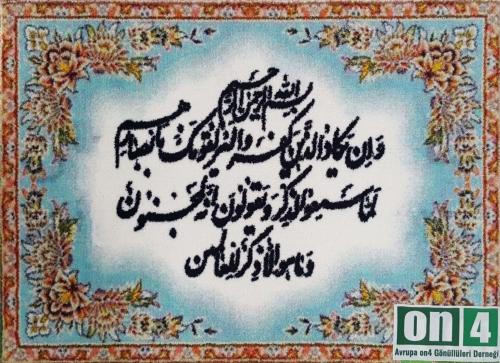 بسم الله الرحمن الرحيم
وان يكاد الذين كفروا ليزلقونك بابصارهم
لما سمعوا الذكر ويقولون انه لمجنون
وما هو الا ذكر للعالمين
on4
Avrupa on4 Gönüllüleri Derneği